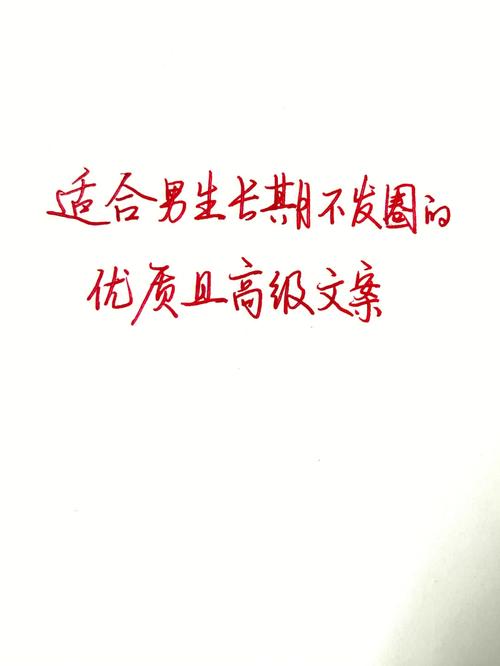 适合男生长期不发圈的
优质且高级文案